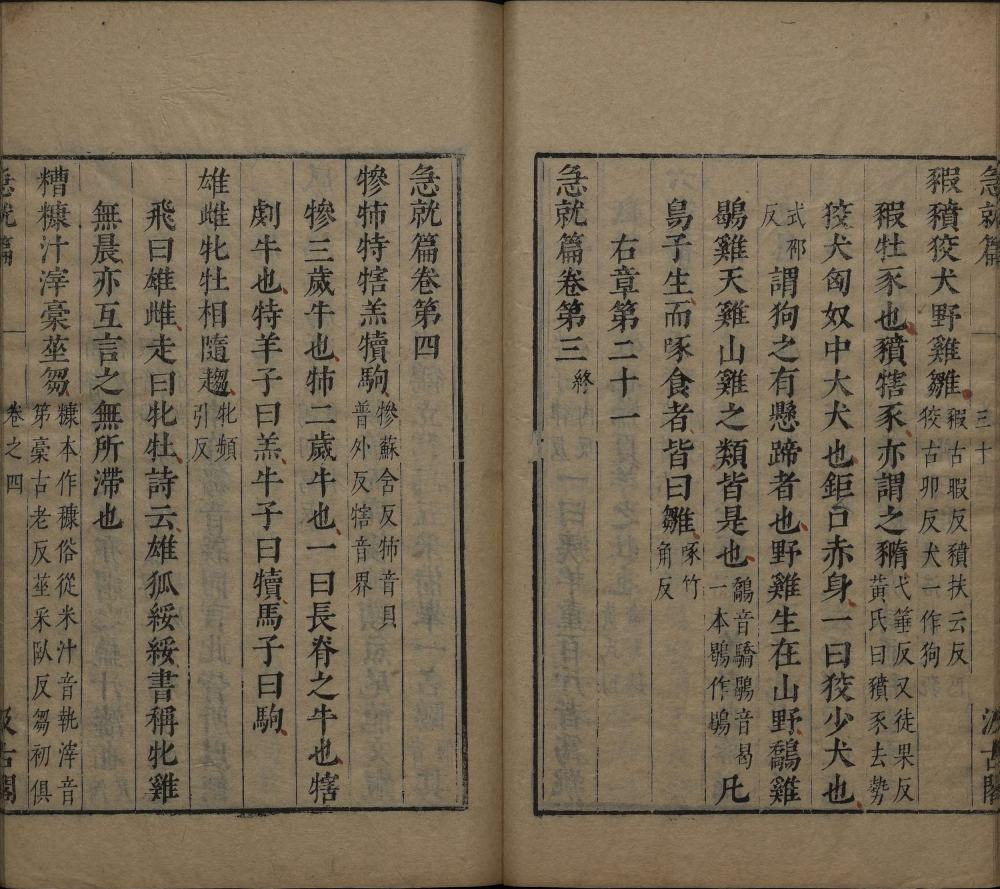 急就篇
三十
汲古閣
豭豶狡犬野雞雛豭古暇反豶扶云反狡古卯反犬一作狗
豭牡豕也豶犗豕亦謂之豶弋䇔反又徒果反黃氏曰豶豕去勢
狡犬匈奴中大犬也鉅口赤身一曰狡少犬也
式䣍反謂狗之有懸蹄者也野雞生在山野鷮雞
鶡雞天雞山雞之類皆是也鷮音驕鶡音曷一本鶡作鴆凡
鳥子生而啄食者皆曰雛啄竹角反
右章第二十一
急就篇卷第三終
急就篇卷第四
犙㸬特犗羔犢駒犙蘇舍反㸬音貝普外反犗音界
犙三歲牛也㸬二歲牛也一曰長脊之牛也犗
劇牛也特羊子曰羔牛子曰犢馬子曰駒
雄雌牝牡相隨趨牝頻引反
飛曰雄雌走曰牝牡詩云雄狐綏綏書稱牝雞
無晨亦互言之無所滯也
糟糠汁滓稾莝芻糠本作穅俗從米汁音執滓音第稾古老反莝采臥反芻初俱
急就篇
一
卷之四
汲古閣